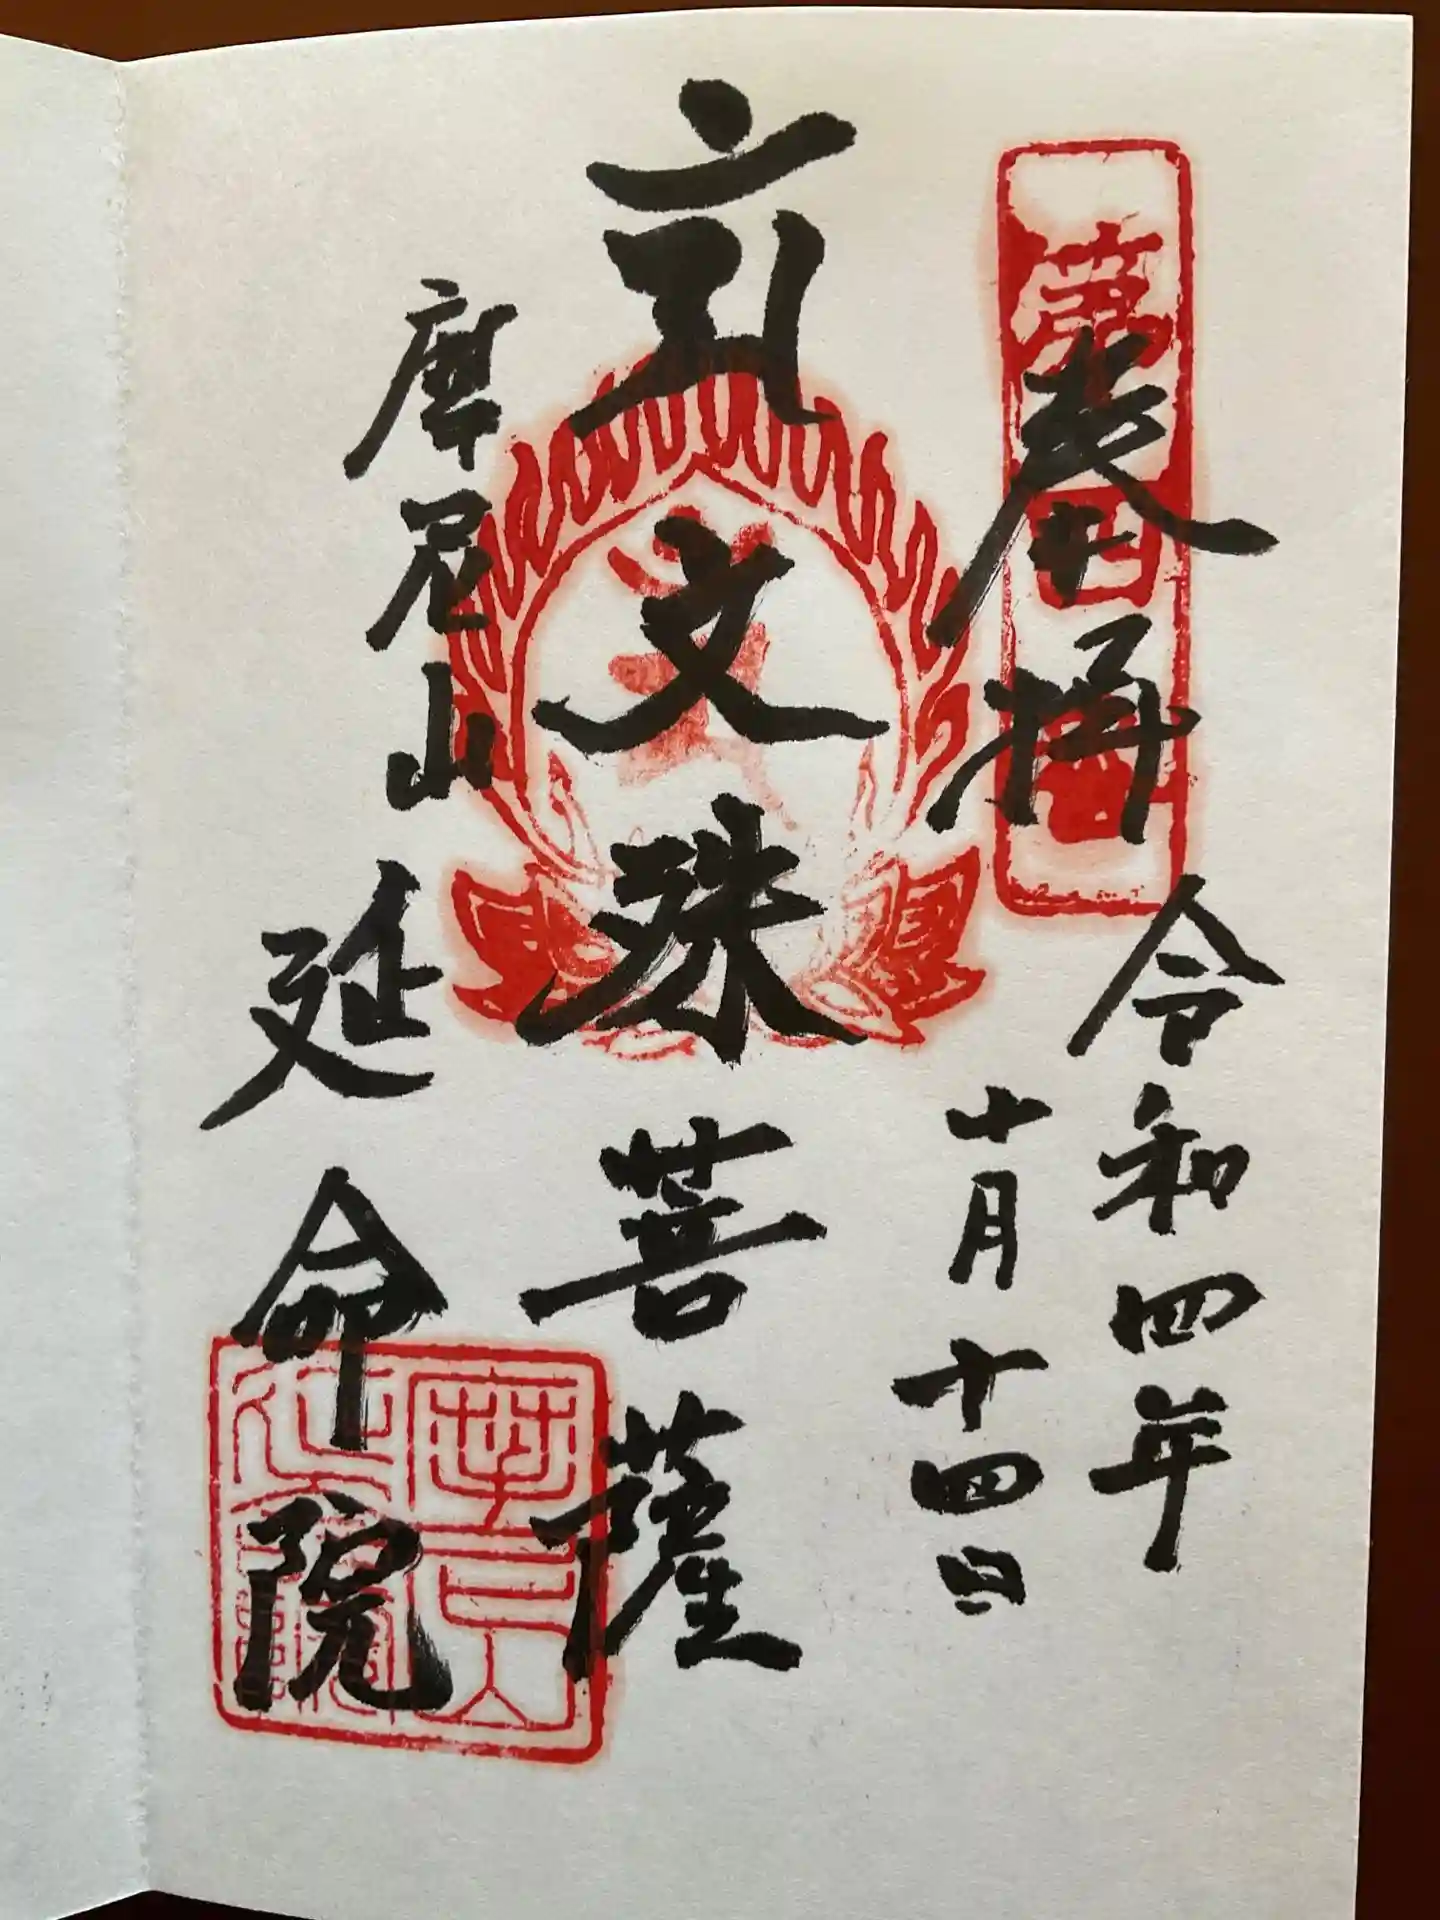 奉拝
令和四年
十月十四日
文殊菩薩
摩尼山
延命院